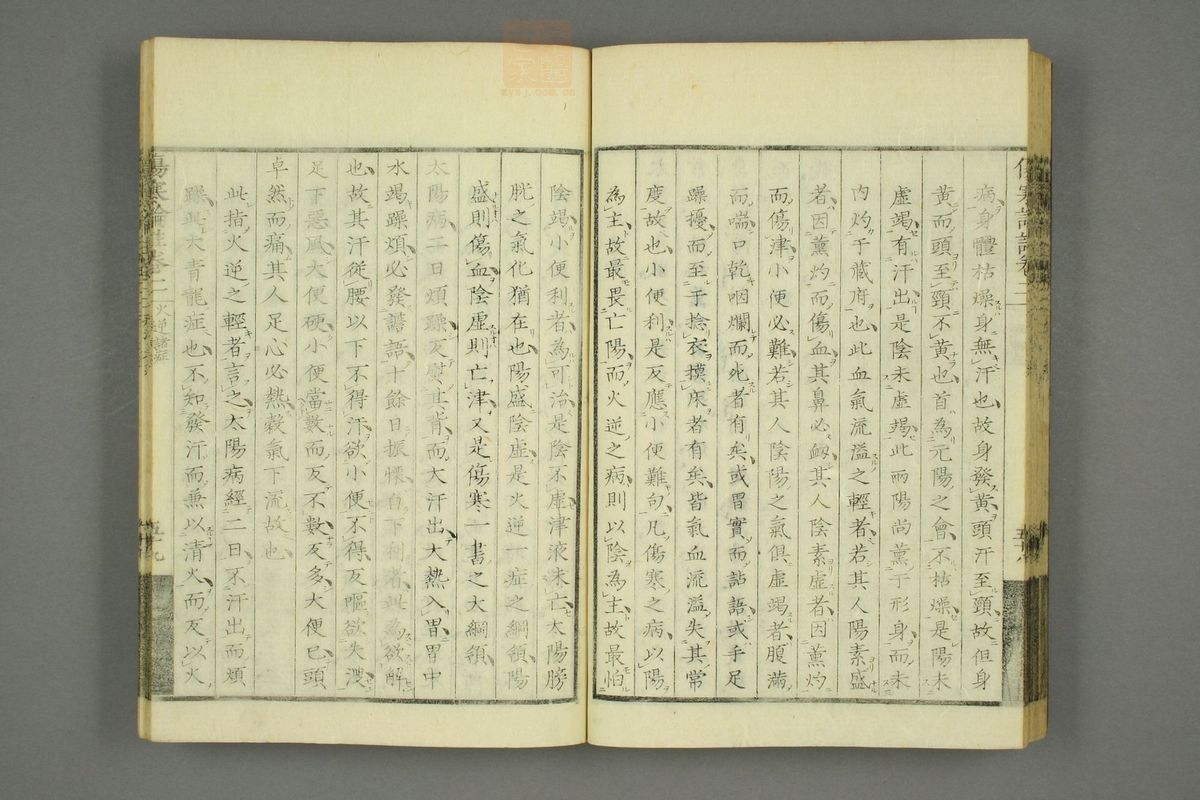 病身體枯燥身無汗也故身發黃頭汗至頸故但身
黃而頭至頸不黃也首為元陽之會不枯燥是陽未
虛竭有汗出是陰未虛竭此兩陽尚薰于形身而未
內灼于藏府也此血氣流溢之輕者若其人陽素盛
者因薰灼而傷血其鼻必衂其人陰素虛者因薰灼
而傷津小便必難若其人陰陽之氣俱虛竭者腹滿
而喘口乾咽爛而死者有矣或胃實而譫語或手足
躁擾而至手捻衣摸床者有矣皆氣血流溢失其常
度故也小便利是反應小便難句凡傷寒之病以陽
為主故最畏亡陽而火逆之病則以陰為主故最怕
陰竭小便利者為可治是陰不虛津液未亡太陽膀
胱之氣化猶在也陽盛陰虛是火逆一症之綱領陽
盛則傷血陰虛則亡津又是傷寒一書之大綱領
太陽病二日煩躁反熨其背而大汗出大熱入胃胃中
水竭躁煩必發譫語十餘日振慄自下利者此為欲解
也故其汗從腰以下不得汗欲小便不得反嘔欲失溲
足下惡風大便硬小便當數而反不數反多大便已頭
卓然而痛其人足心必熱穀氣下流故也
此指火逆之輕者言之太陽病經二日不汗出而煩
躁此大青龍症也不知發汗而兼以清火而反以火
傷寒論註卷二 火逆諸症
五十九